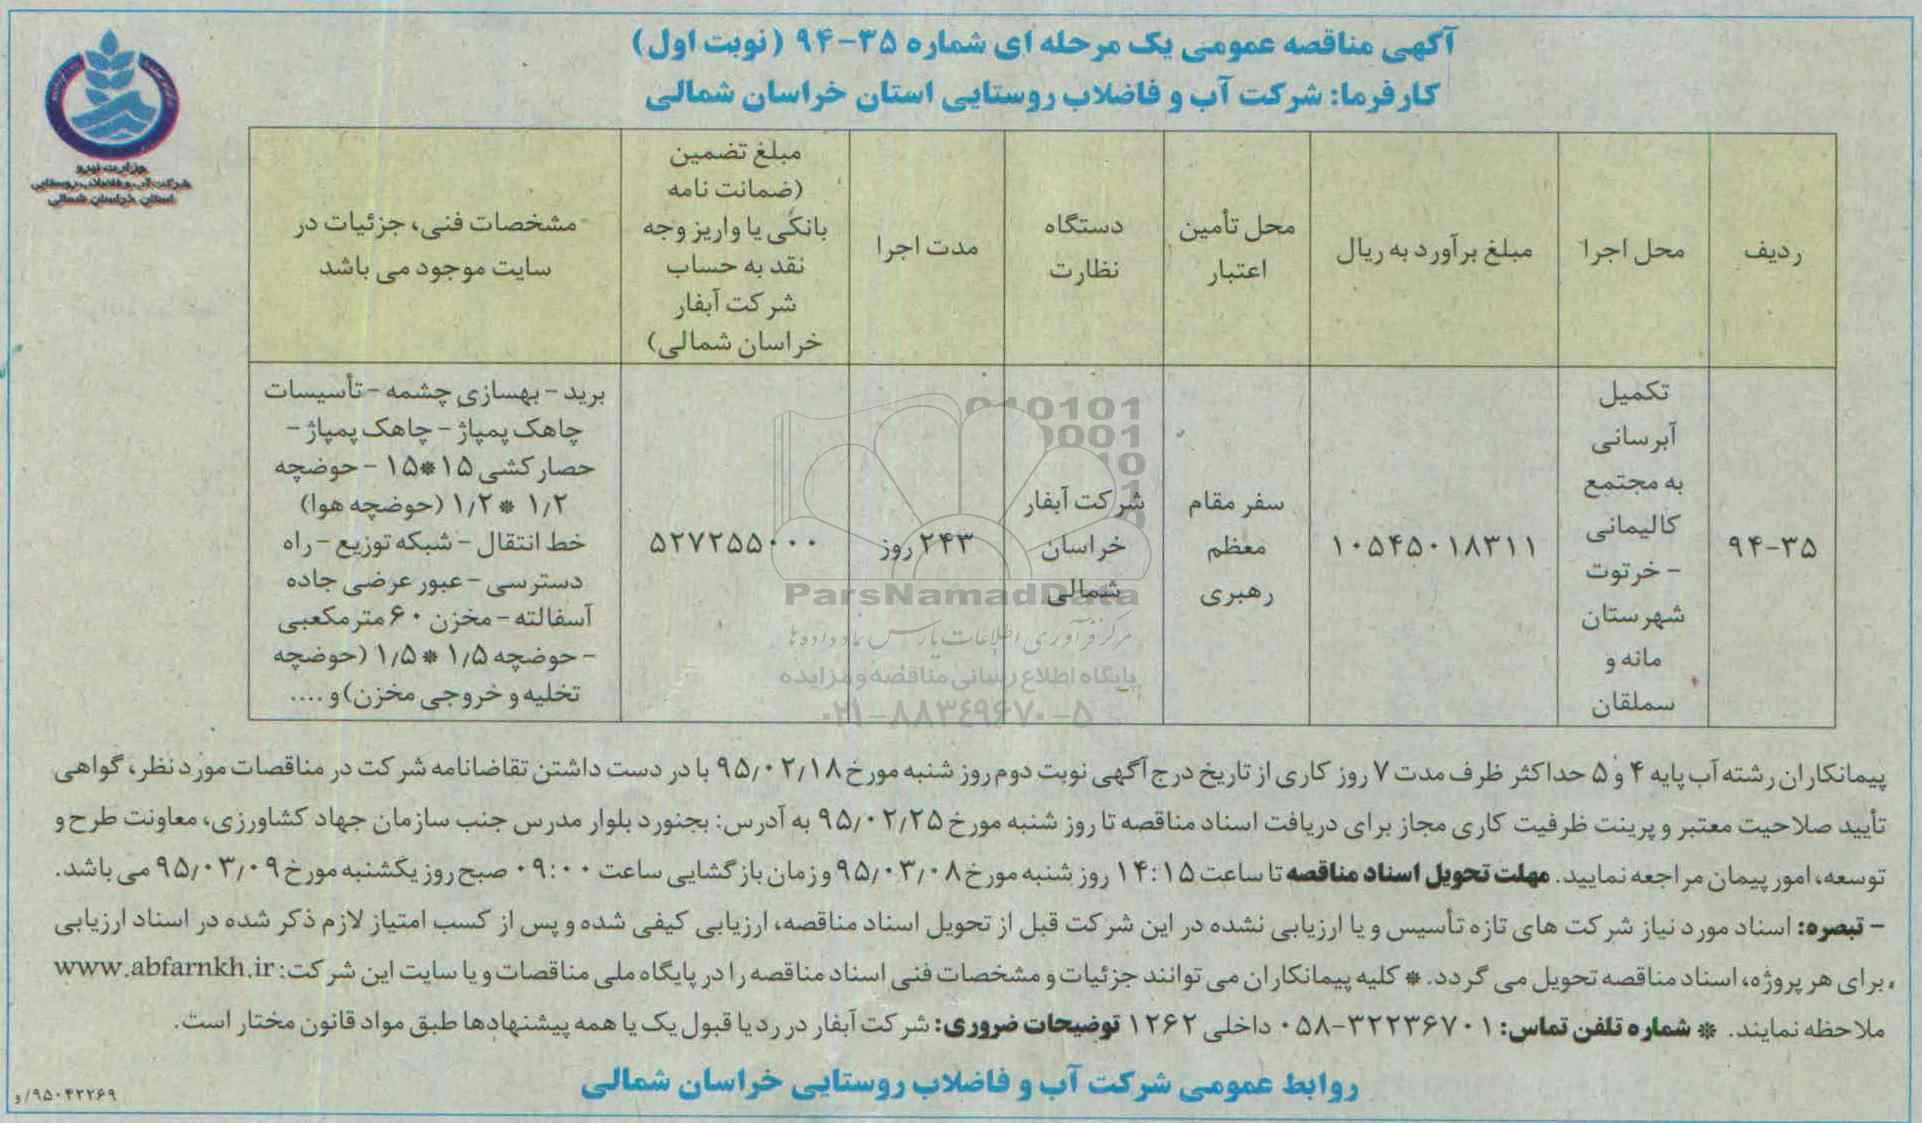 آگهی مناقصه عمومی یک مرحله ای شماره ۳۵-۹۴ (نوبت اول)
کارفرما: شرکت آب و فاضلاب روستایی استان خراسان شمالی
وزارت نیرو
شرکت آب و فاضلاب روستایی
استان خراسان شمالی
ردیف
محل اجرا
مبلغ برآورد به ریال
محل تأمین
اعتبار
دستگاه
نظارت
مدت اجرا
مبلغ تضمین
(ضمانت نامه
بانکی یا واریز وجه
نقد به حساب
شرکت آبفار
خراسان شمالی)
مشخصات فنی، جزئیات در
سایت موجود می باشد
۹۴-۳۵
تکمیل
آبرسانی
به مجتمع
کالیمانی
- خرتوت
شهرستان
مانه و
سملقان
۱۰۵۴۵۰۱۸۳۱۱
سفر مقام
معظم
رهبری
شرکت آبفار
خراسان
شمالی
۲۴۳ روز
۵۲۷۲۵۵۰۰۰
برید - بهسازی چشمه - تأسیسات
چاهک پمپاژ - چاهک پمپاژ -
حصارکشی ۱۵*۱۵ - حوضچه
۱٫۲ * ۱٫۲ (حوضچه هوا)
خط انتقال - شبکه توزیع - راه
دسترسی - عبور عرضی جاده
آسفالته - مخزن ۶۰ مترمکعبی
- حوضچه ۱٫۵ * ۱٫۵ (حوضچه
تخلیه و خروجی مخزن) و ....
010101
0001
10
1
ParsNamadData
مرکز فرآوری اطلاعات پارس نماد داده ها
پایگاه اطلاع رسانی مناقصه و مزایده
۰۲۱-۸۸۳۴۹۶۷۰-۵
پیمانکاران رشته آب پایه ۴ و ۵ حداکثر ظرف مدت ۷ روز کاری از تاریخ درج آگهی نوبت دوم روز شنبه مورخ ۹۵/۰۲/۱۸ با در دست داشتن تقاضانامه شرکت در مناقصات مورد نظر، گواهی
تأیید صلاحیت معتبر و پرینت ظرفیت کاری مجاز برای دریافت اسناد مناقصه تا روز شنبه مورخ ۹۵/۰۲/۲۵ به آدرس: بجنورد بلوار مدرس جنب سازمان جهاد کشاورزی، معاونت طرح و
توسعه، امور پیمان مراجعه نمایید. مهلت تحویل اسناد مناقصه تا ساعت ۱۴:۱۵ روز شنبه مورخ ۹۵/۰۳/۰۸ و زمان بازگشایی ساعت ۰۹:۰۰ صبح روز یکشنبه مورخ ۹۵/۰۳/۰۹ می باشد.
- تبصره: اسناد مورد نیاز شرکت های تازه تأسیس و یا ارزیابی نشده در این شرکت قبل از تحویل اسناد مناقصه، ارزیابی کیفی شده و پس از کسب امتیاز لازم ذکر شده در اسناد ارزیابی
برای هر پروژه، اسناد مناقصه تحویل می گردد. * کلیه پیمانکاران می توانند جزئیات و مشخصات فنی اسناد مناقصه را در پایگاه ملی مناقصات و یا سایت این شرکت: www.abfarnkh.ir
ملاحظه نمایند. * شماره تلفن تماس: ۳۲۲۳۶۷۰۱-۰۵۸ داخلی ۱۲۶۲ توضیحات ضروری: شرکت آبفار در رد یا قبول یک یا همه پیشنهادها طبق مواد قانون مختار است.
روابط عمومی شرکت آب و فاضلاب روستایی خراسان شمالی
۹۵۰۴۲۲۶۹/و